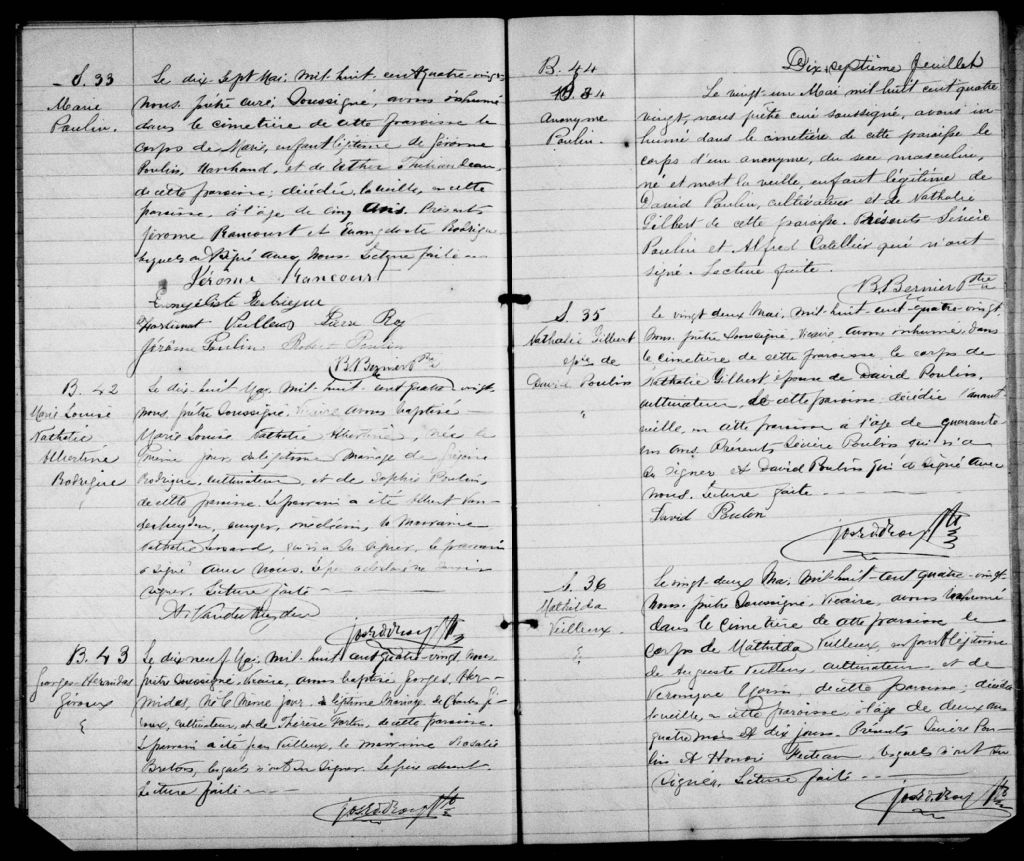 S. 33
Marie
Poulin.
Le dix sept Mai, mil-huit-cent-quatre-vingt
nous, prêtre curé soussigné, avons inhumé
dans le cimetière de cette paroisse le
corps de Marie, enfant légitime de Jérôme
Poulin, Marchand, et de
de cette paroisse; décédée la veille, en cette
paroisse, à l'âge de cinq ans. Présents
Jérôme Rancourt et Evangeliste Rodrigue
lesquels ont signé avec nous. Lecture faite
Jérôme Rancourt
Evangeliste Rodrigue
Veilleux Pierre Roy
Jérôme Poulin Robert Poulin
B. Bernier Ptre
B. 42
Marie Louise
Nathalie
Albertine
Rodrigue
Le dix-huit Mai, mil-huit-cent-quatre-vingt
nous, prêtre soussigné, Vicaire avons baptisé
Marie Louise Nathalie Albertine, née le
même jour, du légitime mariage de
Rodrigue, cultivateur et de Sophie Poulin,
de cette paroisse. Le parrain a été Albert Van-
derheyden, médecin, la marraine
Nathalie qui n'a su signer, le parrain
a signé avec nous.
signer. Lecture faite
A. Vanderheyden
B. 43
Georges-Hermidas
Giroux
Le dix neuf Mai, mil-huit-cent-quatre-vingt, nous
prêtre soussigné, Vicaire, avons baptisé Georges, Her-
midas, né le même jour, du légitime mariage de Charles Gi-
roux, cultivateur, et de Thérèse Fortin, de cette paroisse.
Le parrain a été Jean Veilleux, la marraine Rosalie
Breton, lesquels n'ont su signer. Le père absent.
Lecture faite
Dix septième feuillet
B. 44
S. 34
Anonyme
Poulin.
Le vingt-un Mai mil huit cent quatre
vingt, nous prêtre curé soussigné, avons in-
humé dans le cimetière de cette paroisse le
corps d'un anonyme, du sexe masculin,
né et mort la veille, enfant légitime de
David Poulin, cultivateur et de Nathalie
Gilbert de cette paroisse. Présents Sévère
Poulin et Alfred Catellier qui n'ont
signé. Lecture faite.
B. Bernier Ptre
S. 35
Nathalie Gilbert
épse de
David Poulin
Le vingt deux Mai, mil-huit-cent-quatre-vingt
nous, prêtre soussigné, Vicaire, avons inhumé dans
le cimetière de cette paroisse le corps de
Nathalie Gilbert, épouse de David Poulin,
cultivateur, de cette paroisse, décédée l'avant
veille, en cette paroisse à l'âge de quarante
un ans. Présents Sévère Poulin qui n'a
su signer et David Poulin qui a signé avec
nous. Lecture faite
David Poulin
S. 36
Mathilda
Veilleux
Le vingt deux Mai, mil-huit-cent-quatre-vingt
nous, prêtre soussigné, Vicaire, avons inhumé
dans le cimetière de cette paroisse le
corps de Mathilda Veilleux, enfant légitime
de Auguste Veilleux cultivateur et de
Veronique de cette paroisse; décédée
la veille, en cette paroisse, à l'âge de deux ans
quatre mois et dix jours. Présents Sévère Pou-
lin et Honoré lesquels n'ont su
signer. Lecture faite